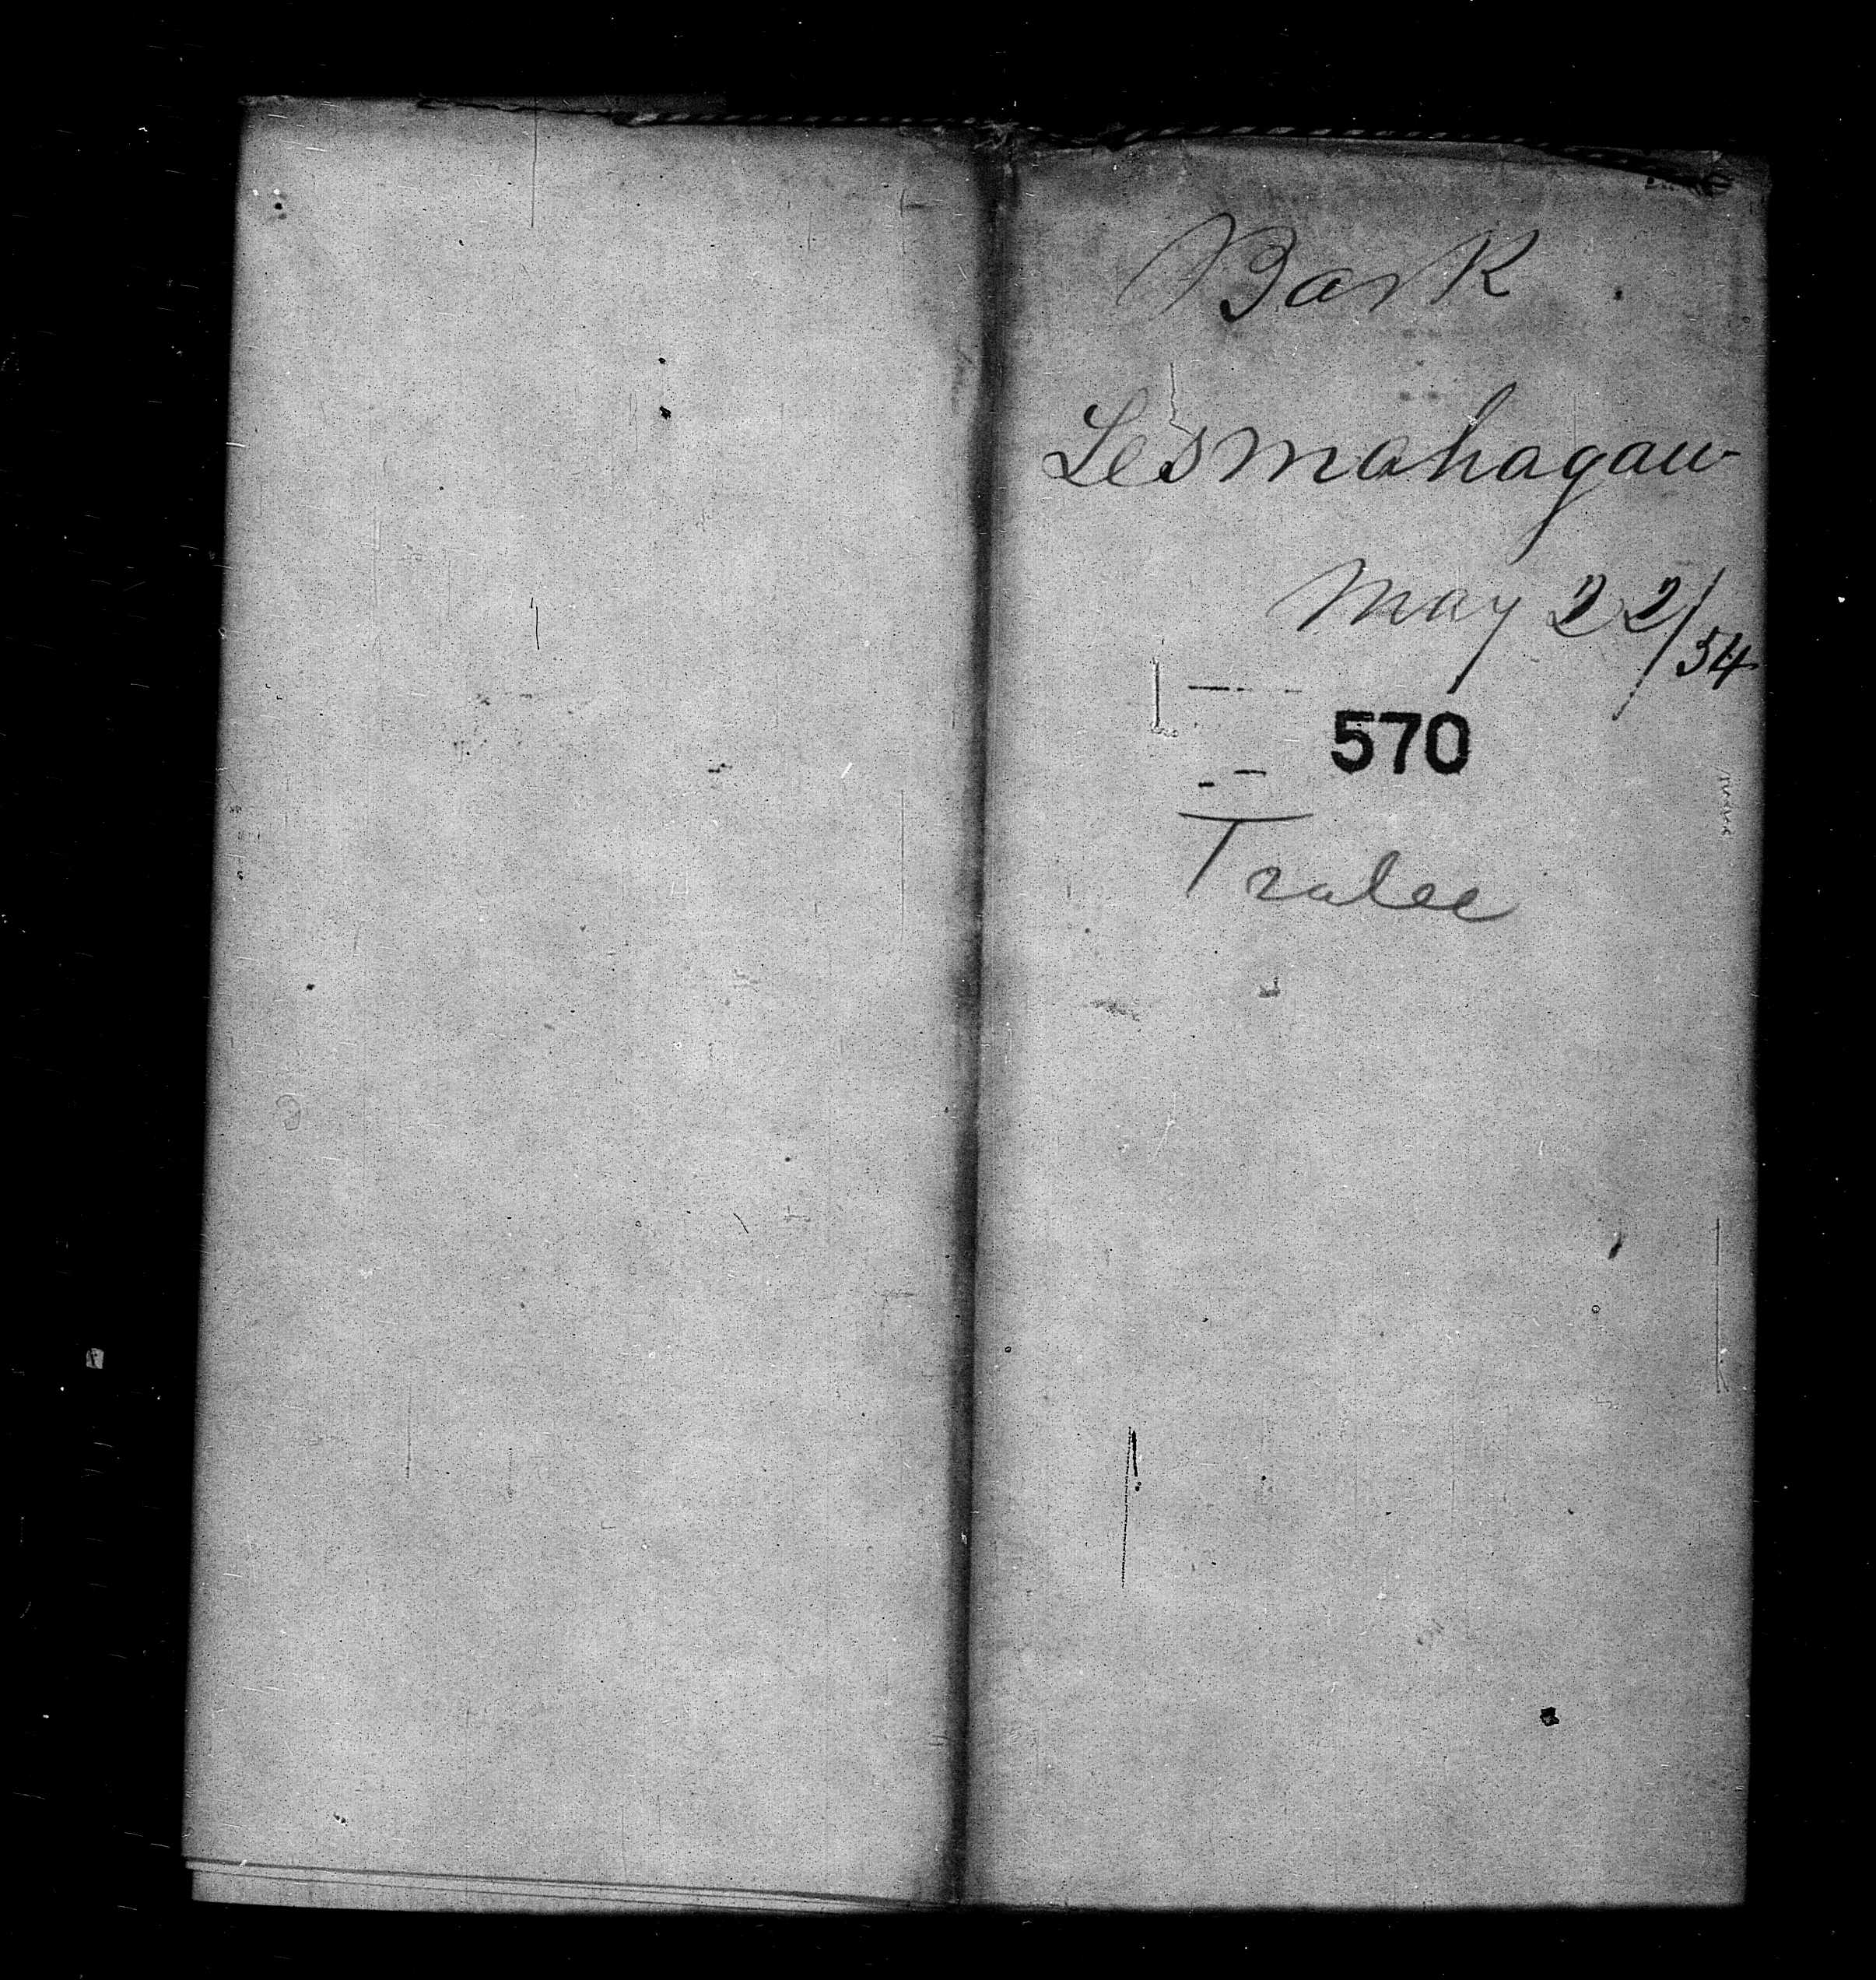 Bark
Lesmahagaw
May 22/54
570
Tralee